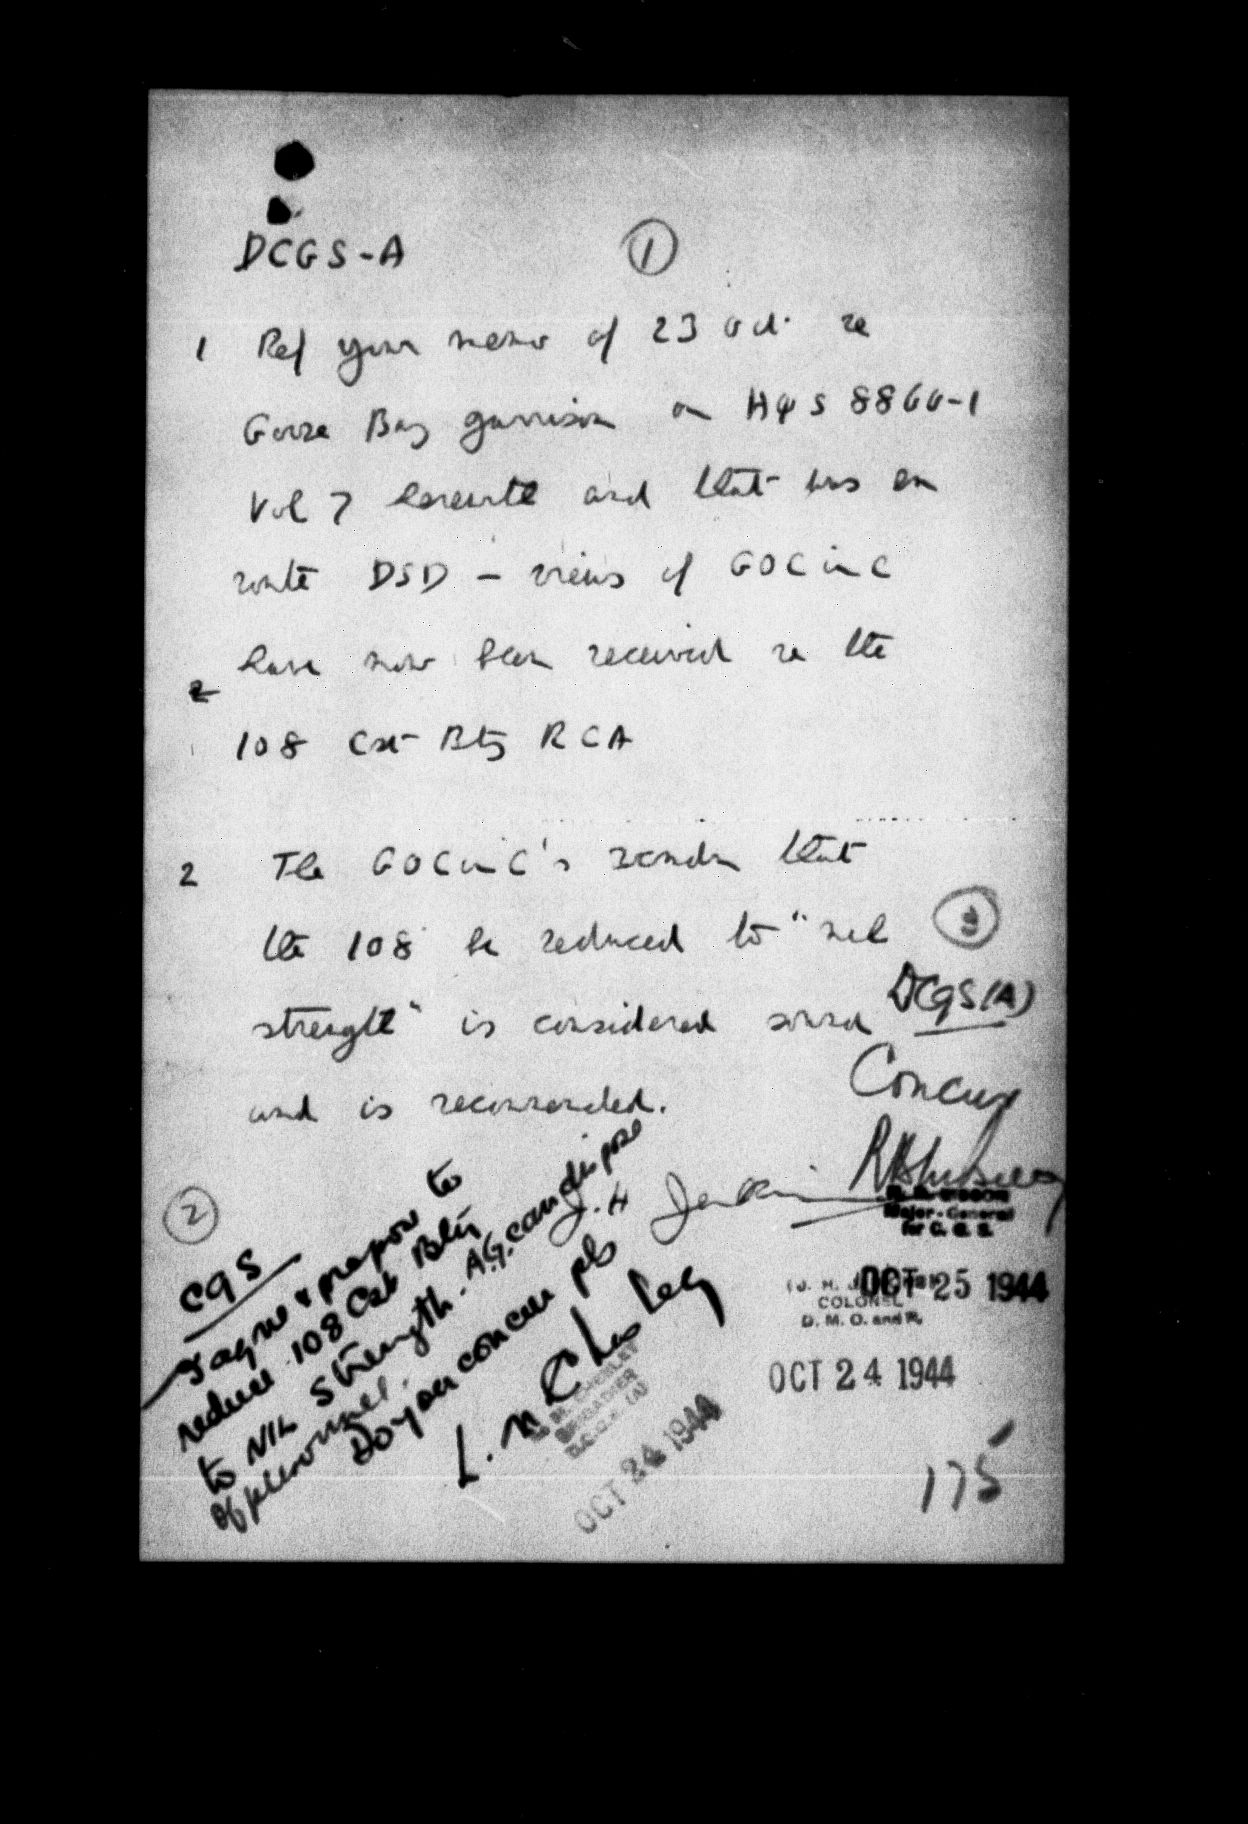 DCGS-A
①
1 Ref your memo of 23 Oct. re
Goose Bay garrison on HQS 8860-1
Vol 7 herewith and that was en
route DSD - views of GOC in C
have now been received re the
108 Cst Bty RCA
2 The GOC in C's recmdn that
the 108 be reduced to "nil
strength" is considered sound
and is recommended.
J. H. Jenkins
(J. H.
COLONEL
D. M. O. and P.
OCT 24 1944
②
CGS
I agree & propose to
reduce 108 Cst Bty
to NIL strength. A.G. can dispose
of personnel.
Do you concur pls
L. M. Chesley
L. M. CHESLEY
BRIGADIER
D.C.G.S. (A)
OCT 24 1944
③
DCGS(A)
Concur
Major-General
for C. G. S.
OCT 25 1944
175